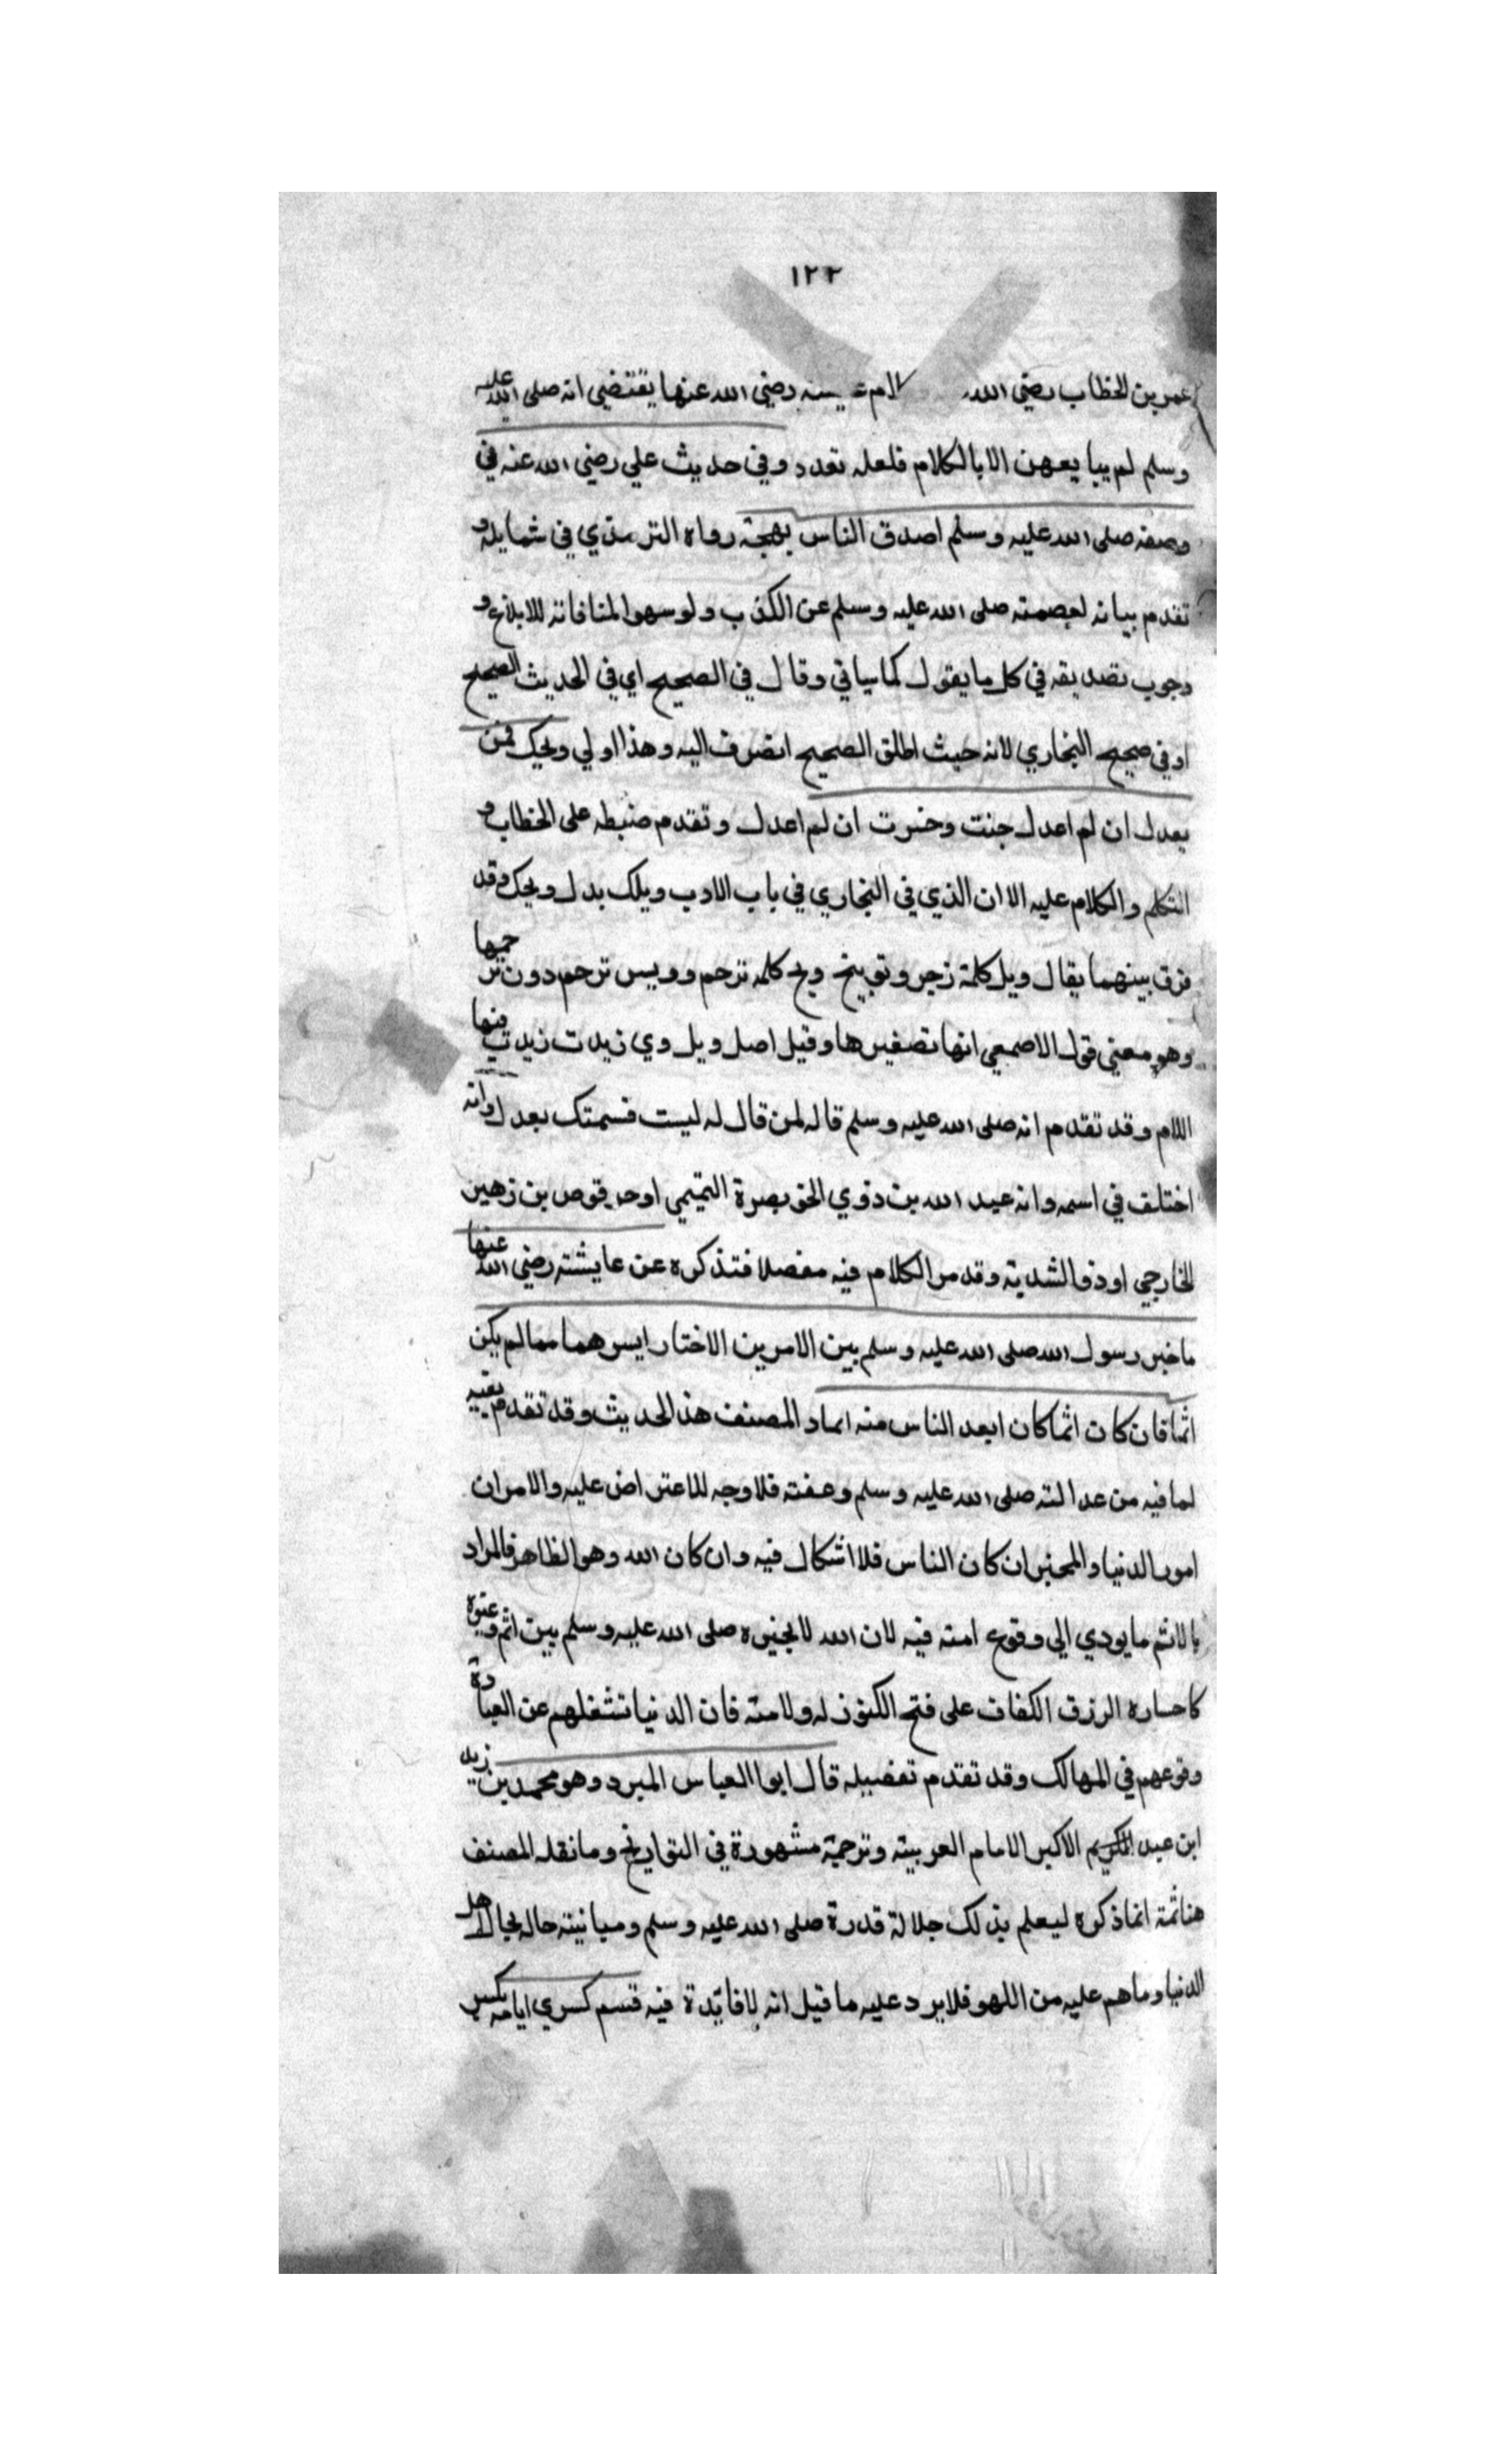 ١٢٢
عمر بن الخطاب رضي الله رضي الله عنها يقتضي انه صلى الله عليه
وسلم لم يبايعهن الا بالكلام فلعله تعدد وفي حديث علي رضي الله عنه في
وصفه صلى الله عليه وسلم اصدق الناس بهجة رواه الترمذي في شمايله و
تقدم بيانه لعصمته صلى الله عليه وسلم عن الكذب ولو سهوا لمنافاته للابلاغ و
وجوب تصديقه في كل ما يقول كما سياتي وقال في الصحيح اي في الحديث الصحيح
او في صحيح البخاري لانه حيث اطلق الصحيح انصرف اليه وهذا اولي ويحك فمن
يعدل ان لم اعدل جنت وخسرت ان لم اعدل وتقدم ضبطه على الخطاب و
التكلم والكلام عليه الا ان الذي في البخاري في باب الادب ويلك بدل ويحك وقد
فرق بينهما يقال ويل كلمة زجر وتوبيخ ويح كلمه ترحم وويس ترحم دون ترحمها
وهو معني قول الاصمعي انها تصغيرها وقيل اصل ويل وي زيدت زيدت فيها
اللام وقد تقدم انه صلى الله عليه وسلم قاله لمن قال له ليست قسمتك بعدل وانه
اختلف في اسمه وانه عبد الله بن ذوي الخويصرة التميمي او حرقوص بن زهير
الخارجي او ذو الشدية وقد مر الكلام فيه مفصلا فتذكره عن عايشته رضي الله عنها
ما خير رسول الله صلى الله عليه وسلم بين الامرين الا اختار ايسرهما مما لم يكن
اثما فان كان اثما كان ابعد الناس منه اعاد المصنف هذ الحديث وقد تقدم بقيه
لما فيه من عدالته صلى الله عليه وسلم وعفته فلا وجه للاعتراض عليه والامران
امور الدنيا والمخير ان كان الناس فلا اشكال فيه وان كان الله وهو الظاهر فالمراد
بالاثم ما يودي الي وقوع امته فيه لان الله لا يخيره صلى الله عليه وسلم بين اثم وغيره
كاختياره الرزق الكفاف على فتح الكنوز له ولامته فان الدنيا تشغلهم عن العبادة
وقوعهم في المهالك وقد تقدم تفصيله قال ابوا العباس المبرد وهو محمد بن زيد
ابن عبد الاكبر الامام العربيته وترجمة مشهورة في التواريخ وما نقله المصنف
هنا ثمة انما ذكره ليعلم بذلك جلالة قدرة صلى الله عليه وسلم ومباينته حاله بحال اهل
الدنيا وما هم عليه من اللهو فلا يرد عليه ما قيل انه لا فايدة فيه قسم كسري ايامه بكسر